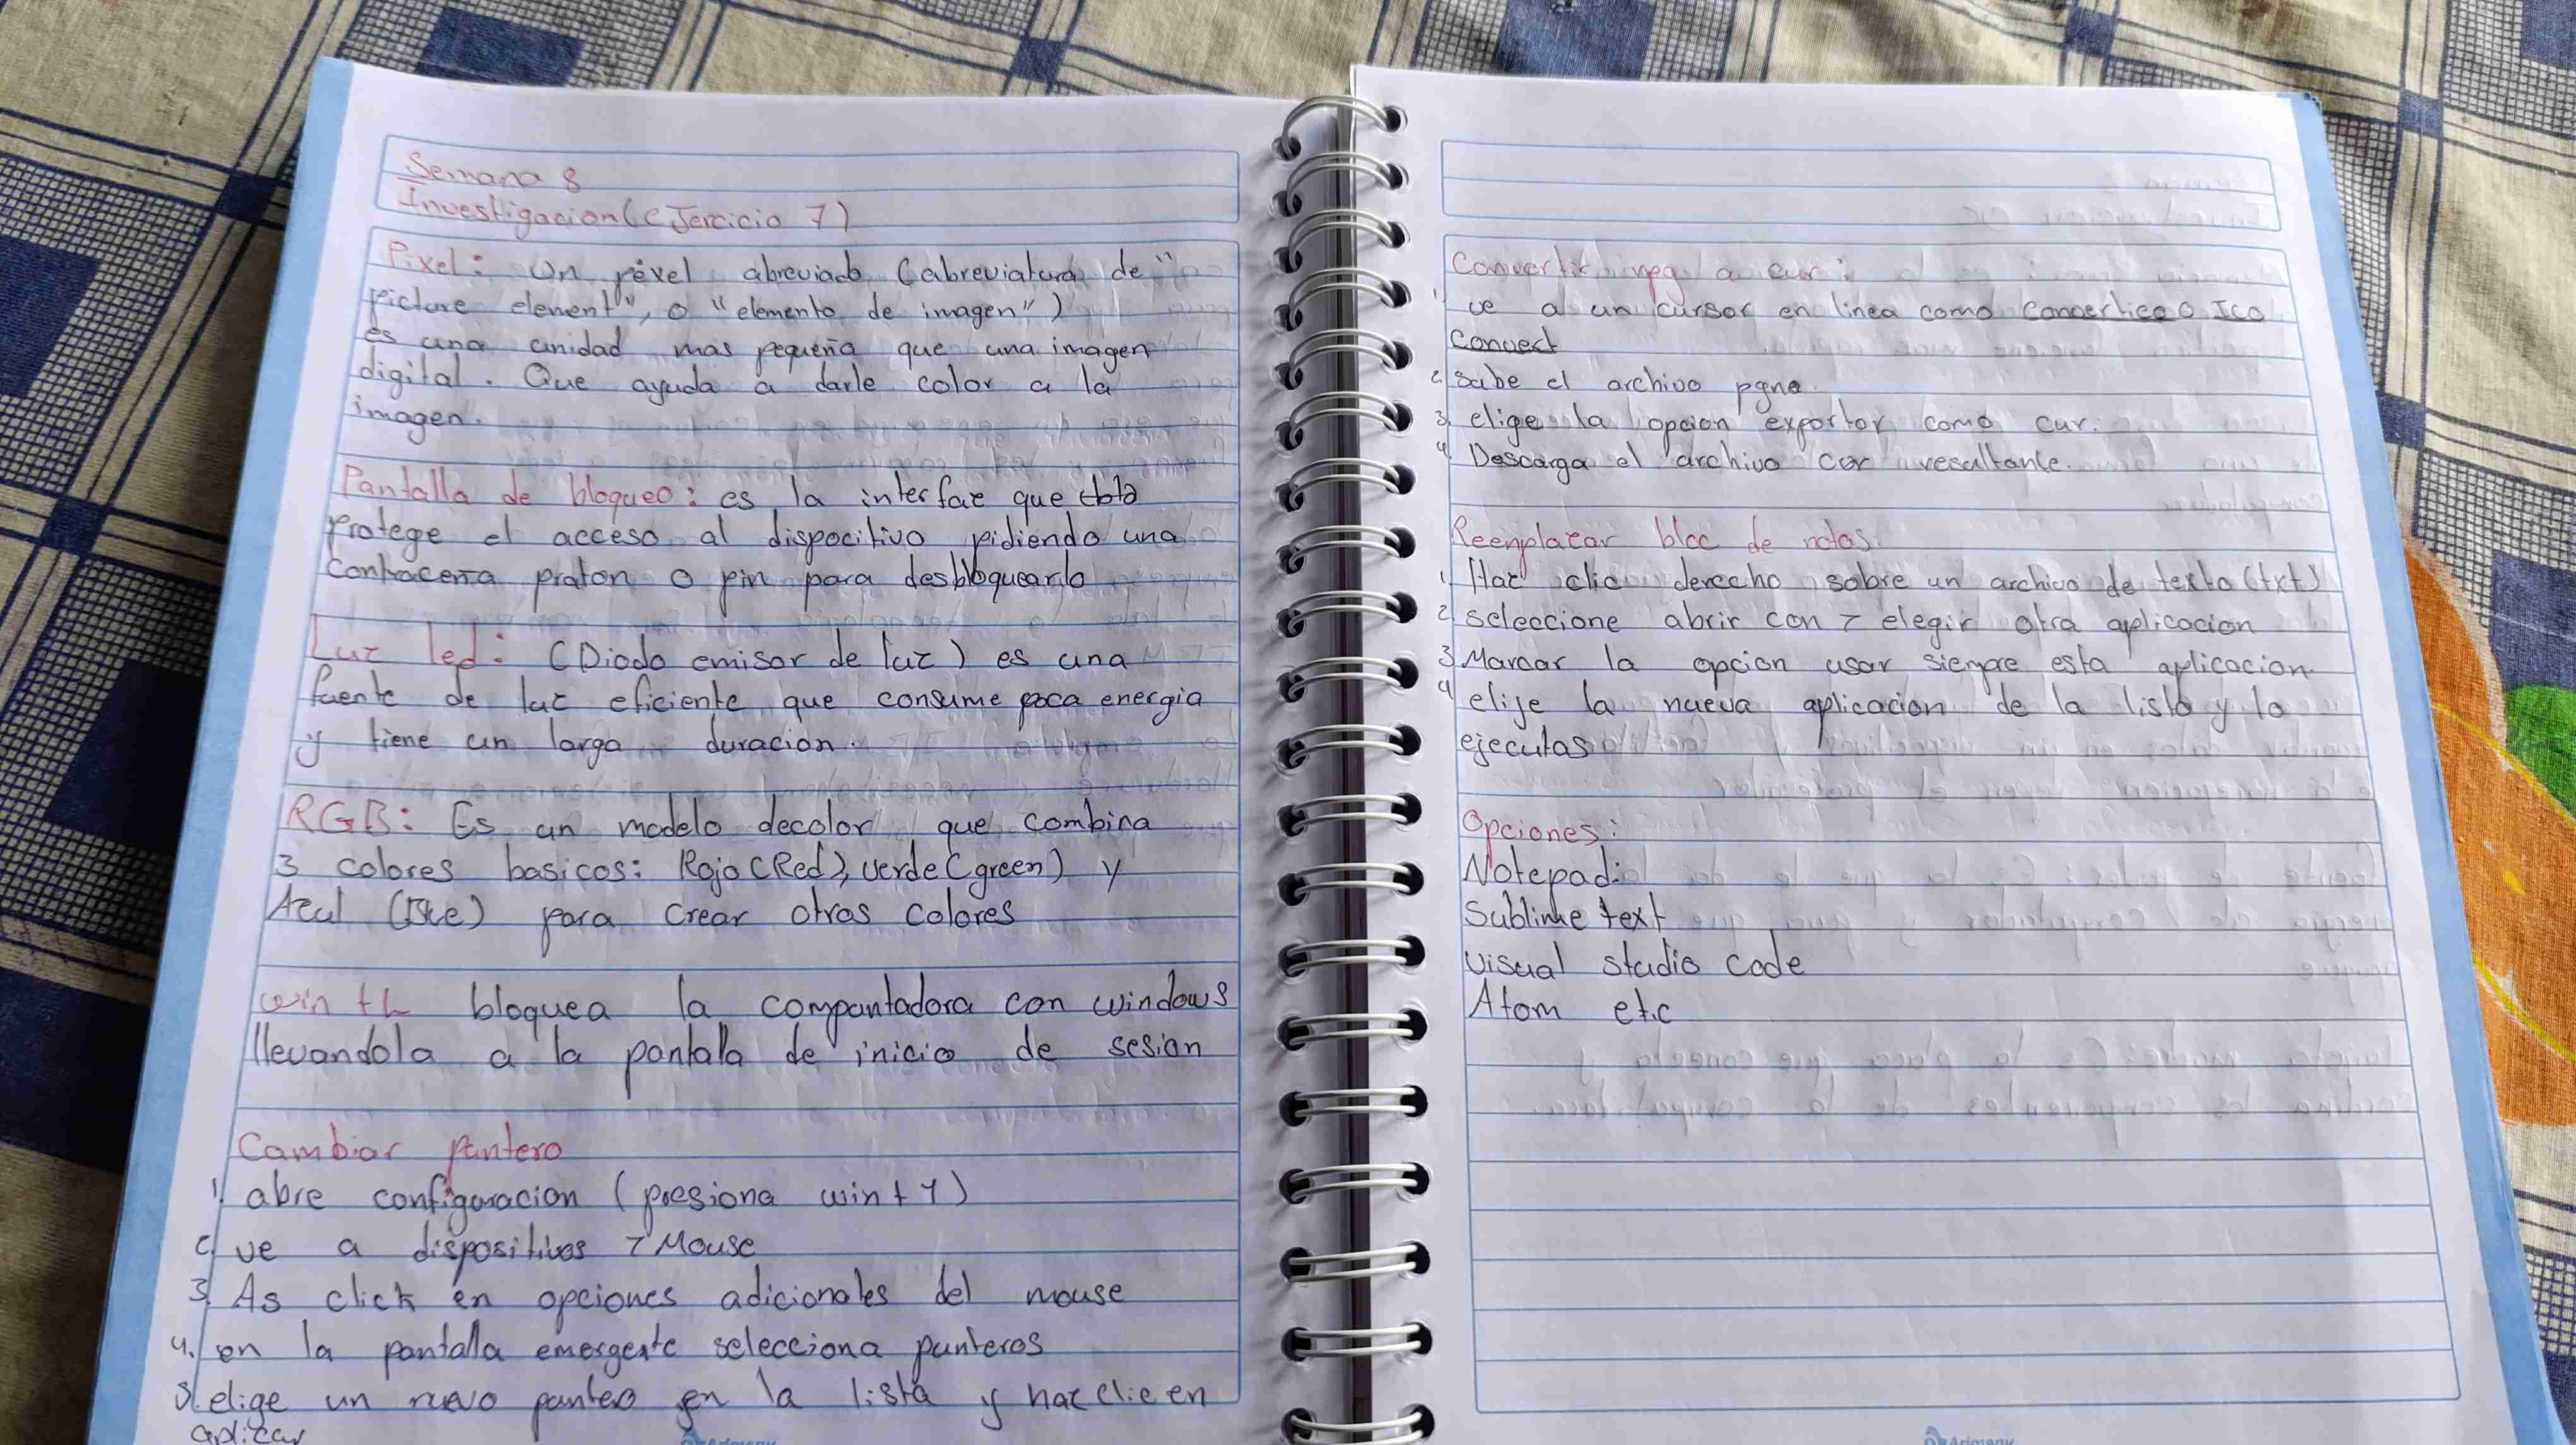 Semana 8
Investigacion (eJercicio 7)
Pixel: Un péxel abreviado (abreviatura de "
picture element", o "elemento de imagen")
es una unidad mas pequeña que una imagen
digital. Que ayuda a darle color a la
imagen.
Pantalla de bloqueo: es la interfaz que
protege el acceso al dispocitivo pidiendo una
Contraceña praton o pin para desbloquearlo
Luz led: (Diodo emisor de luz) es una
fuente de luz eficiente que consume poca energia
y tiene un larga duracion.
RGB: Es un modelo decolor que combina
3 colores basicos: Rojo (Red), verde (green) y
Azul (Blue) para crear otros colores
win +L bloquea la compuntadora con windows
llevandola a la pantalla de inicio de sesion
Cambiar puntero
1. abre configuracion (presiona win + 1)
2. ve a dispositivos > Mouse
3. As click en opciones adicionales del mouse
4. en la pantalla emergente selecciona punteros
5. elige un nuevo puntero en la lista y haz clic en
aplicar
Arimany
Convertir npg a cur:
1. ve a un cursor en linea como Convertico o Ico
Convert
2. Sube el archivo pgne.
3. elige la opcion exportar como cur.
4. Descarga el archivo cur resultante.
Reenplazar bloc de notas:
1. Haz clic derecho sobre un archivo de texto (txt)
2. seleccione abrir con > elegir otra aplicacion
3. Marcar la opcion usar siempre esta aplicacion
4. elije la nueva aplicacion de la lista y lo
ejecutas
Opciones:
Notepad:
Sublime text
Visual studio code
Atom etc
Arimany